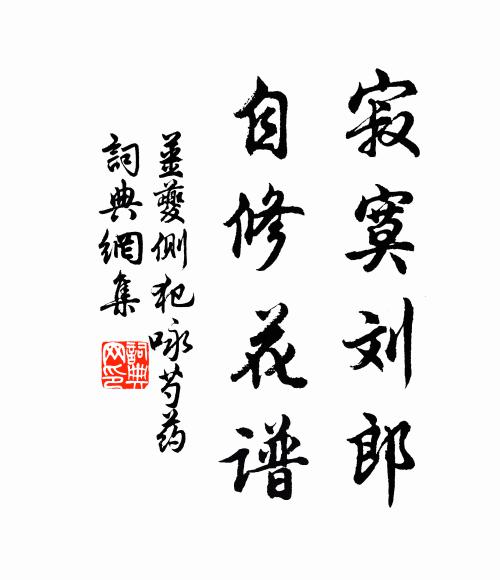 寂寞刘郎
自修花谱
姜夔侧犯咏芍药
詞典網集
詞典網印